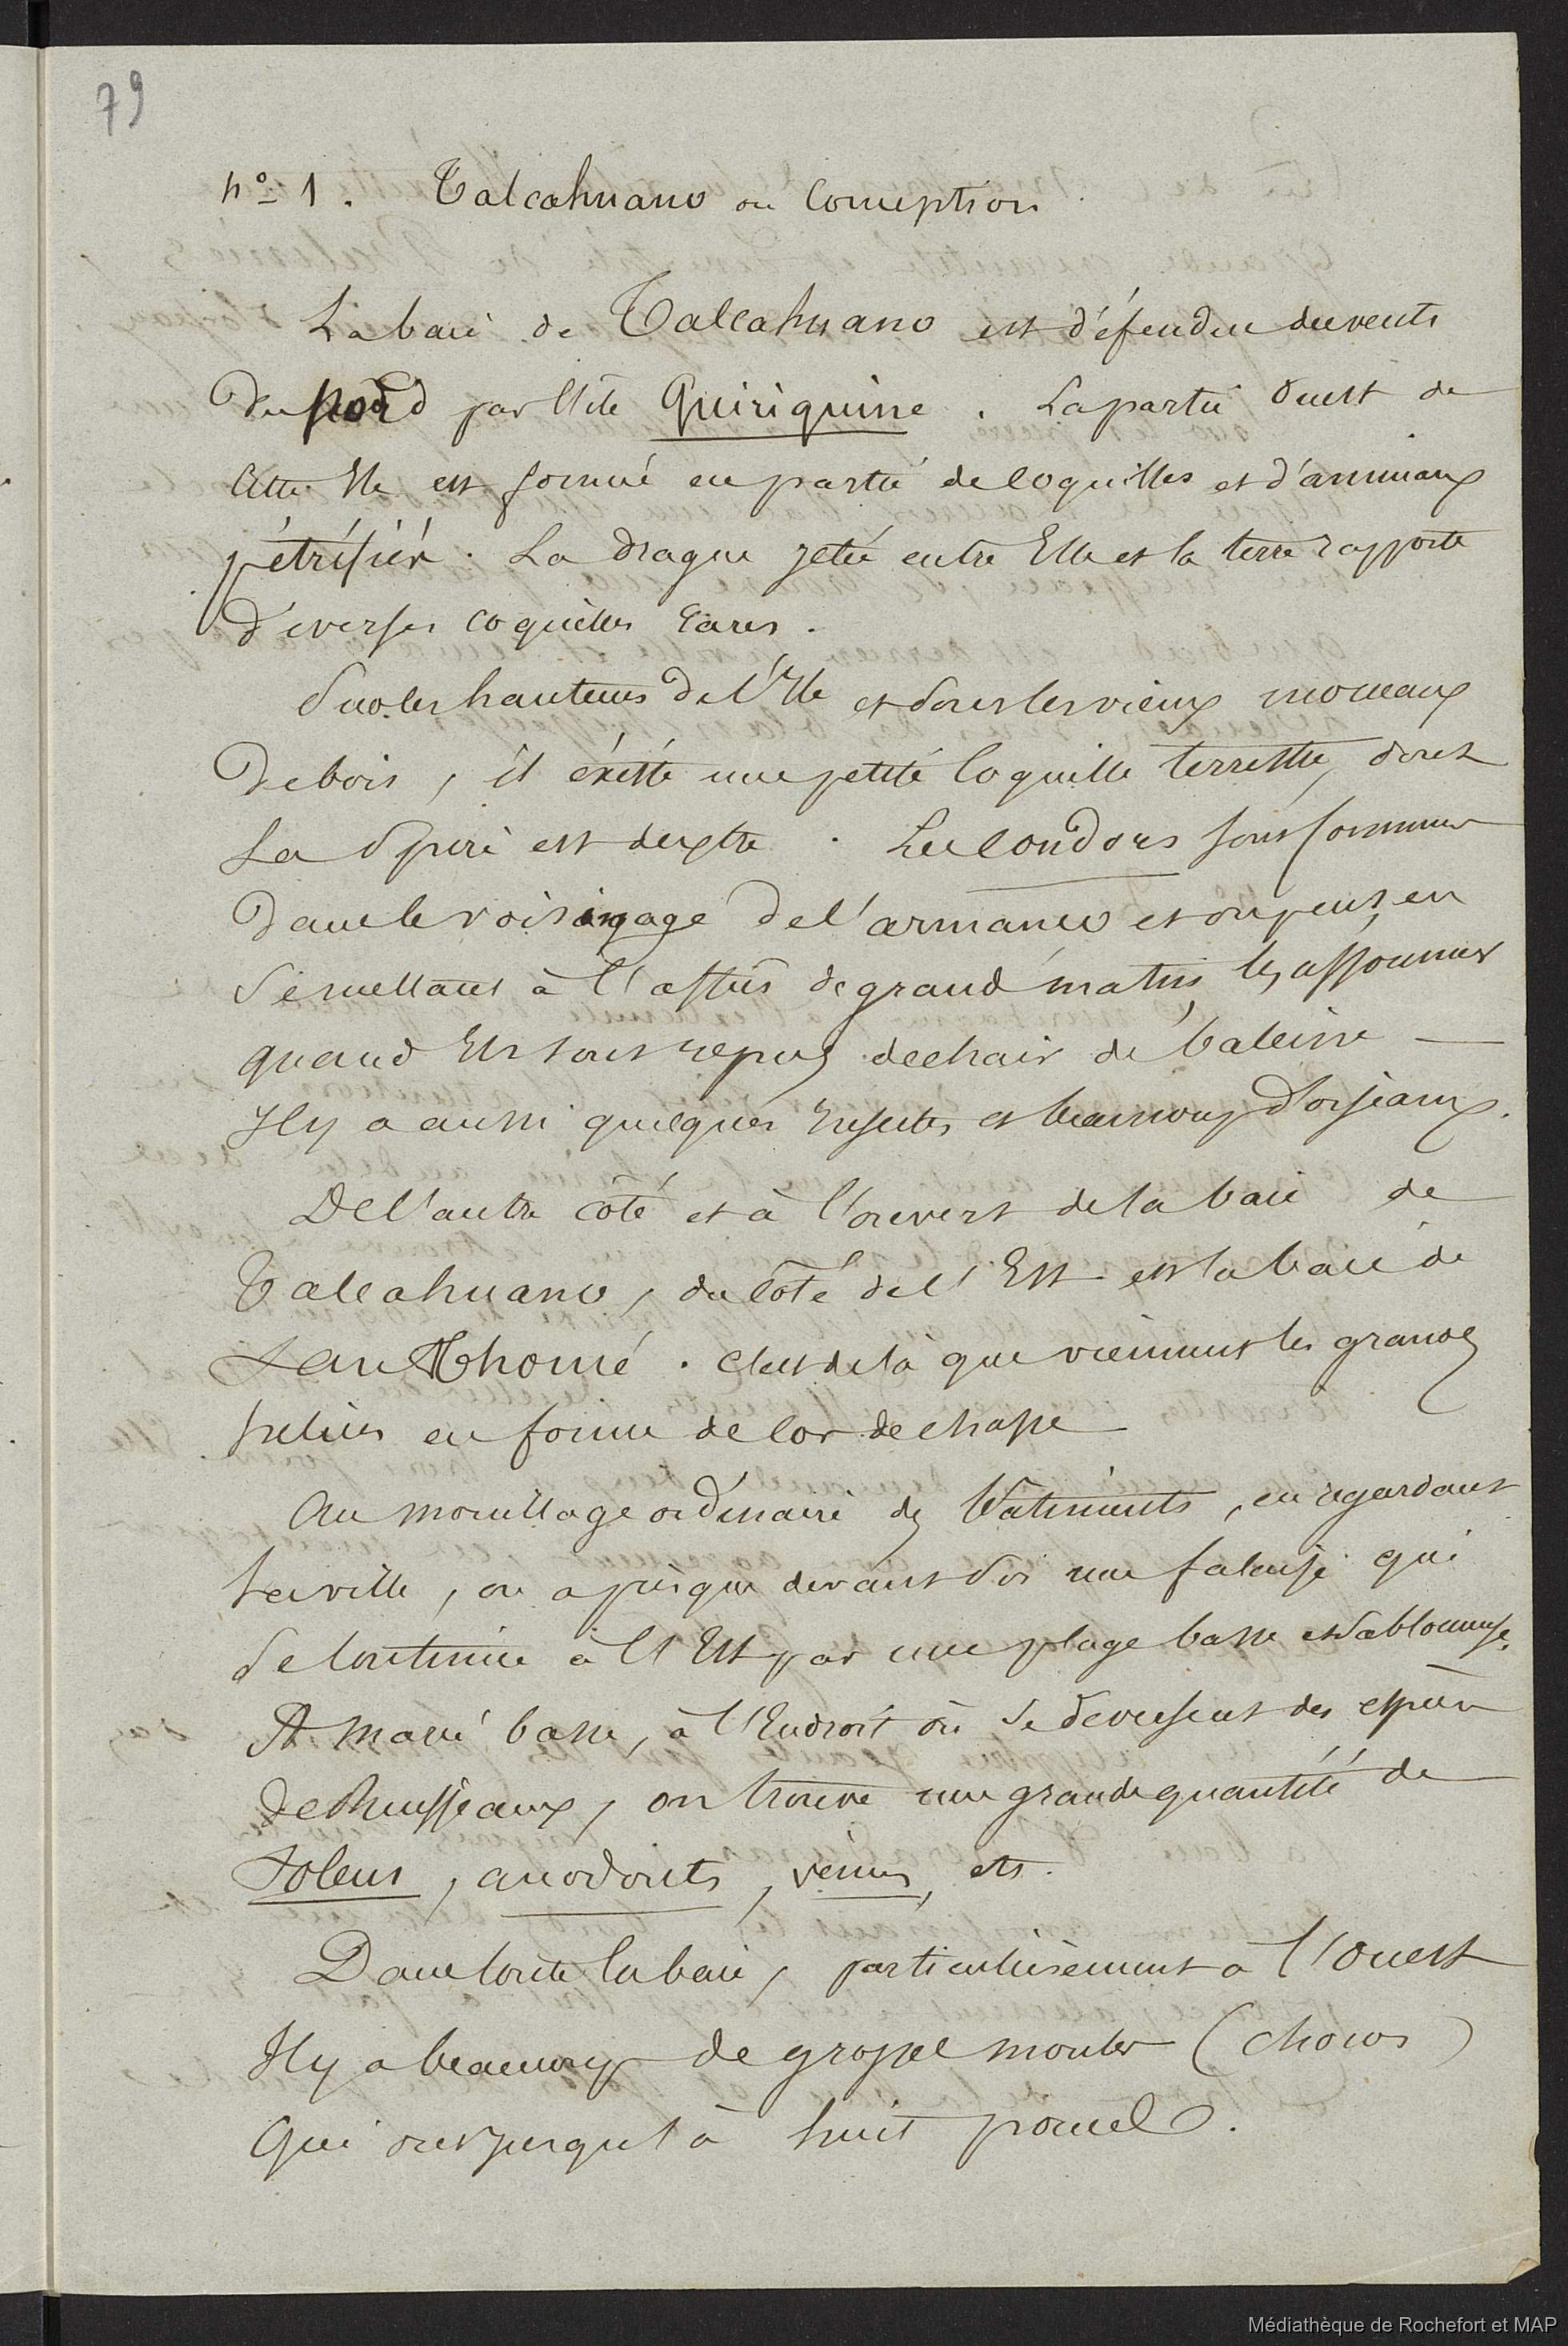 79
nº 1. Talcahuano ou Conception
La baie de Talcahuano est défendue des vents
du nord par l'île Quiriquine. La partie Ouest de
cette Ile est formée en partie de Coquilles et d'animaux
pétrifiés. La drague jetée entre Elle et la terre rapporte
diverses coquilles rares.
Sur les hauteurs de l'Ile et sous les vieux morceaux
de bois, il éxiste une petite Coquille terrestre, dont
La Spire est dextre. Les Condors sont communs
dans le voisinage de l'armanco et on peut, en
se mettant à l'affût de grand matin, les assommer
quand Ils sont repus de chair de baleine —
Il y a aussi quelques Insectes et beaucoup d'oiseaux.
De l'autre côté et à l'ouvert de la baie de
Talcahuano, du Côté de l'Est est la baie de
San Thomé. C'est de là que viennent les grands
hélices en forme de Cor de chasse
Au mouillage ordinaire des Bâtiments, en regardant
La ville, on a presque devant soi une falaise qui
Se Continue à l'Est par une plage basse et Sablonneuse.
A marée basse, à l'Endroit où Se déversent des espèces
de Ruisseaux, on trouve une grande quantité de
Solens, anodontes, vénus, etc.
Dans toute la baie, particulièrement à l'Ouest
Il y a beaucoup de grosses moules (choros)
Qui ont jusqu'à huit pouces.
Médiathèque de Rochefort et MAP